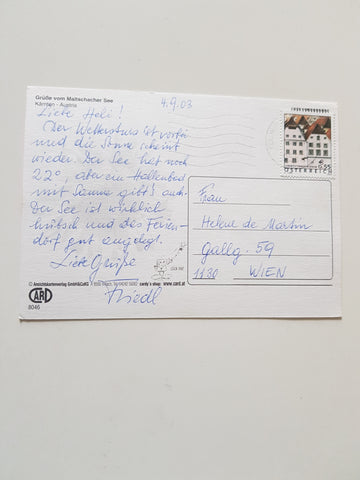 Grüße vom Maltschacher See
Kärnten - Austria
4.9.03
Liebe Heli!
Der Wettersturz ist vorbei
und die Sonne scheint
wieder. Der See hat noch
22°, aber ein Hallenbad
mit Sauna gibt's auch.
Der See ist wirklich
hübsch und das Ferien-
dorf gut angelegt.
Liebe Grüße
Friedl
ÖSTERREICH
Frau
Helene de Martin
Gallg. 59
1130 WIEN
© Ansichtskartenverlag GmbH&CoKG
cardy's shop: www.card.at
CARD
8046